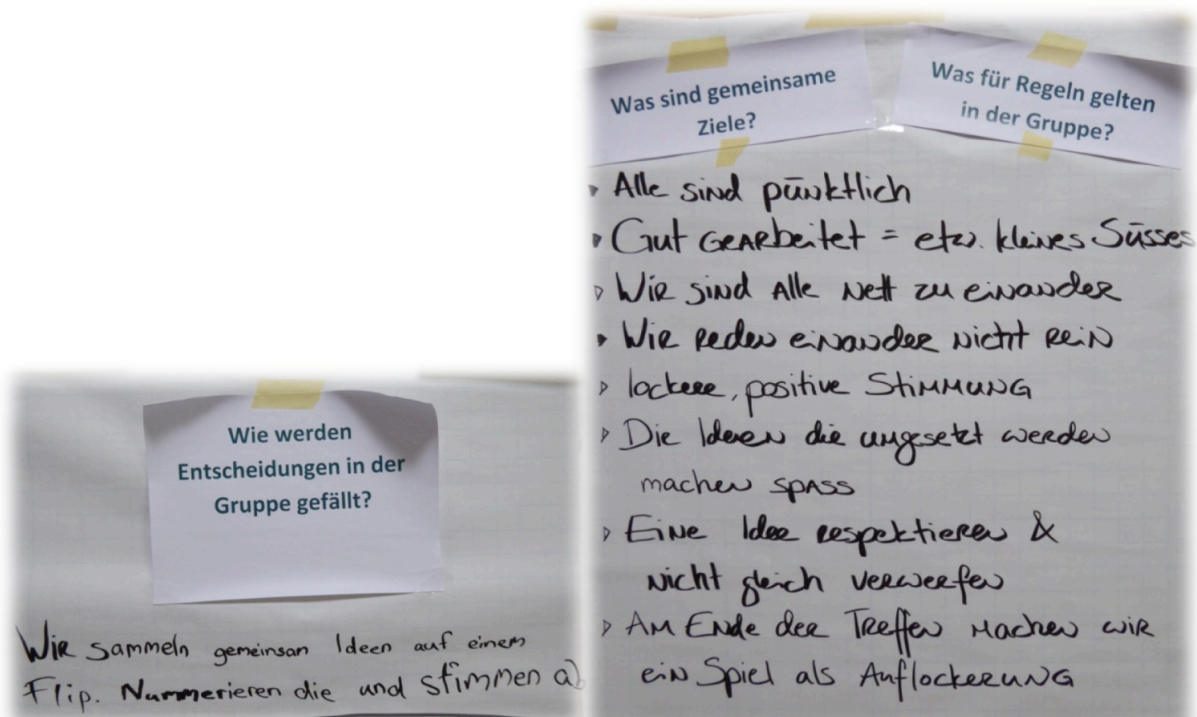 Wie werden
Entscheidungen in der
Gruppe gefällt?
Wir sammeln gemeinsan Ideen auf einem
Flip. Nummerieren die und stimmen ab
Was sind gemeinsame
Ziele?
Was für Regeln gelten
in der Gruppe?
Alle sind pünktlich
Gut gearbeitet = etw. kleines Süsses
Wir sind Alle nett zu einander
Wir reden einander nicht rein
lockere, positive Stimmung
Die Ideen die umgesetzt werden
machen spass
Eine Idee respektieren &
nicht gleich verwerfen
Am Ende der Treffen machen wir
ein Spiel als Auflockerung